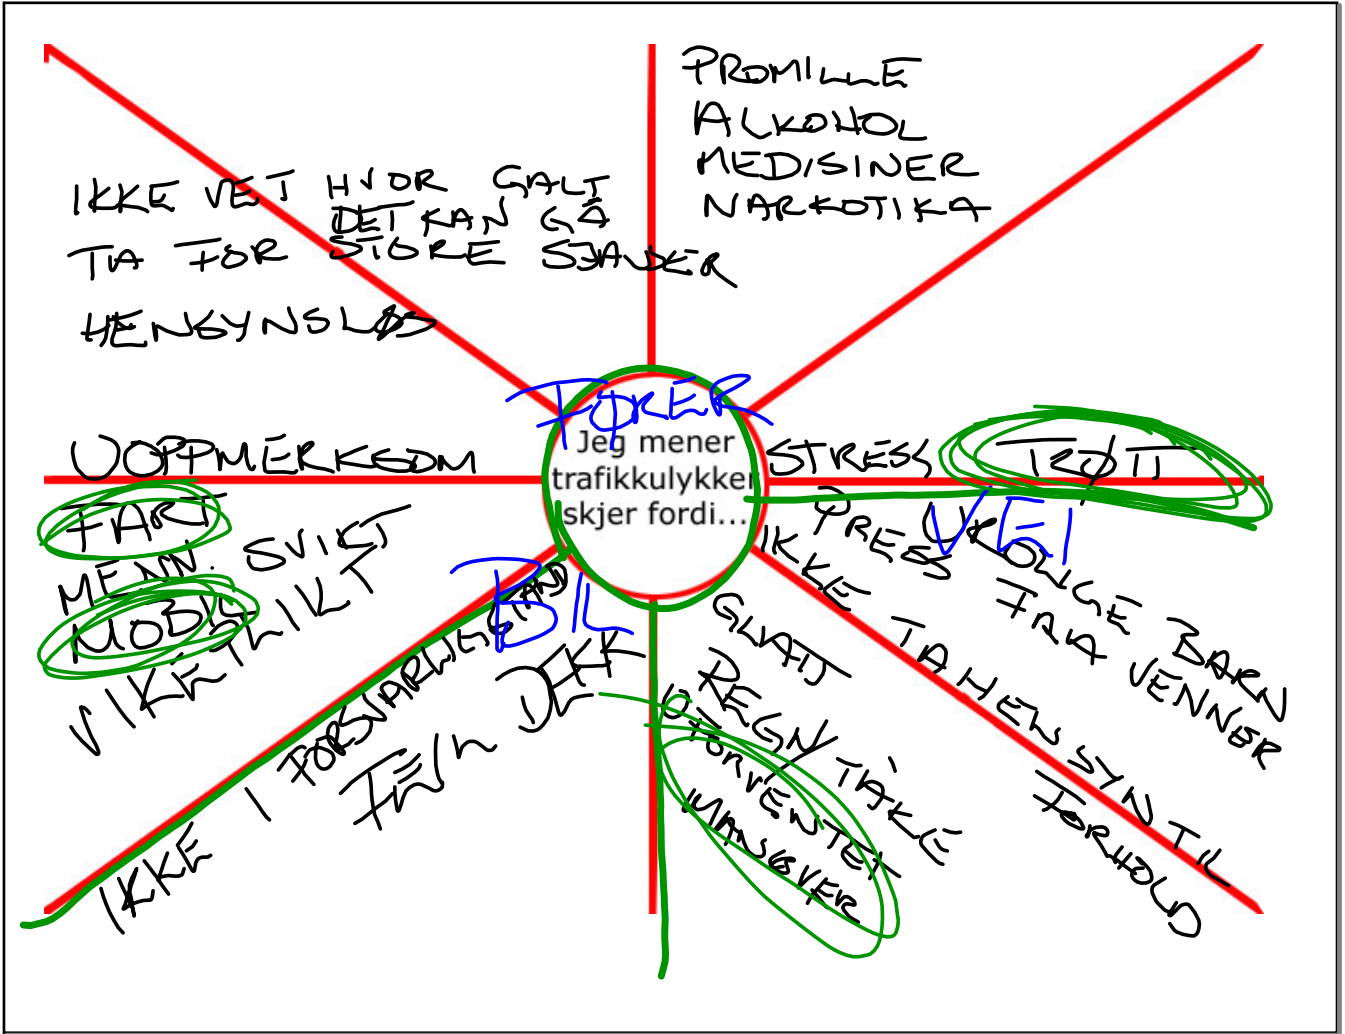 PROMILLE
ALKOHOL
MEDISINER
NARKOTIKA
IKKE VET HVOR GALT
DET KAN GÅ
TA FOR STORE SJANSER
HENSYNSLØS
FØRER
Jeg mener
trafikkulykker
skjer fordi...
UOPPMERKSOM
FART
MENN. SVIKT
MOBIL
VIKEPLIKT
STRESS TRØTT
VEI
PRESS FRA VENNER
UROLIGE BARN
IKKE TA HENSYN TIL
FORHOLD
BIL
IKKE I FORSVARLIG STAND
FEIL DEKK
GLATT
REGN/TÅKE
UFORVENTET
MANØVER